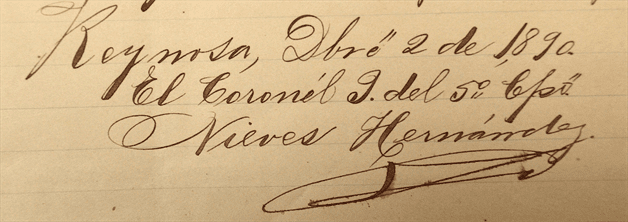 Reynosa, Dbrē 2 de 1890.
El Coronél J. del 5º. Cpō.
Nieves Hernández.